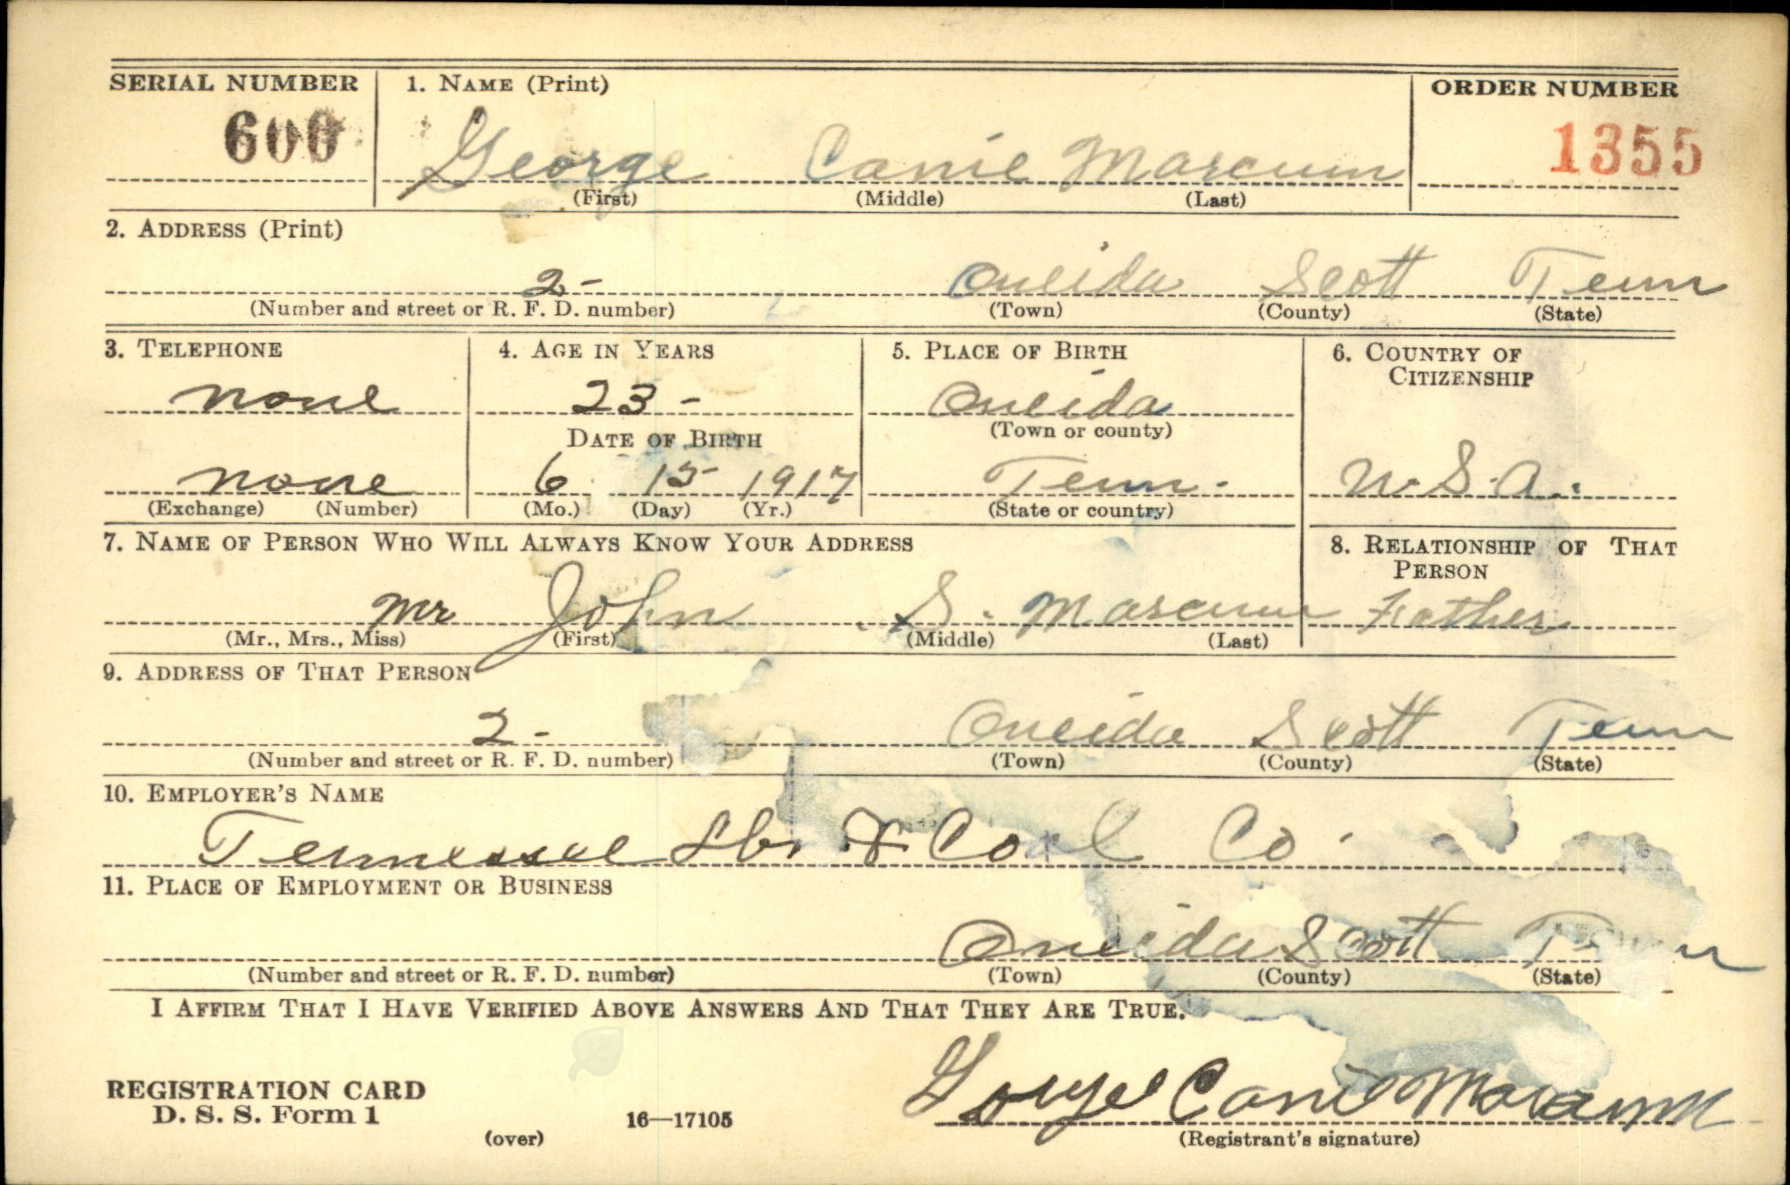 SERIAL NUMBER 1. NAME (Print) ORDER NUMBER
600 George Canie Marcum 1355
(First) (Middle) (Last)
2. ADDRESS (Print)
2- Oneida Scott Tenn
(Number and street or R. F. D. number) (Town) (County) (State)
3. TELEPHONE 4. AGE IN YEARS 5. PLACE OF BIRTH 6. COUNTRY OF
CITIZENSHIP
none 23- Oneida
DATE OF BIRTH (Town or county)
none 6 15 1917 Tenn. U.S.A.
(Exchange) (Number) (Mo.) (Day) (Yr.) (State or country)
7. NAME OF PERSON WHO WILL ALWAYS KNOW YOUR ADDRESS 8. RELATIONSHIP OF THAT
PERSON
Mr John S. Marcum Father
(Mr., Mrs., Miss) (First) (Middle) (Last)
9. ADDRESS OF THAT PERSON
2- Oneida Scott Tenn
(Number and street or R. F. D. number) (Town) (County) (State)
10. EMPLOYER'S NAME
Tennessee Lbr & Coal Co.
11. PLACE OF EMPLOYMENT OR BUSINESS
Oneida Scott Tenn
(Number and street or R. F. D. number) (Town) (County) (State)
I AFFIRM THAT I HAVE VERIFIED ABOVE ANSWERS AND THAT THEY ARE TRUE.
REGISTRATION CARD
D. S. S. Form 1 16—17105 George Canie Marcum
(over) (Registrant's signature)